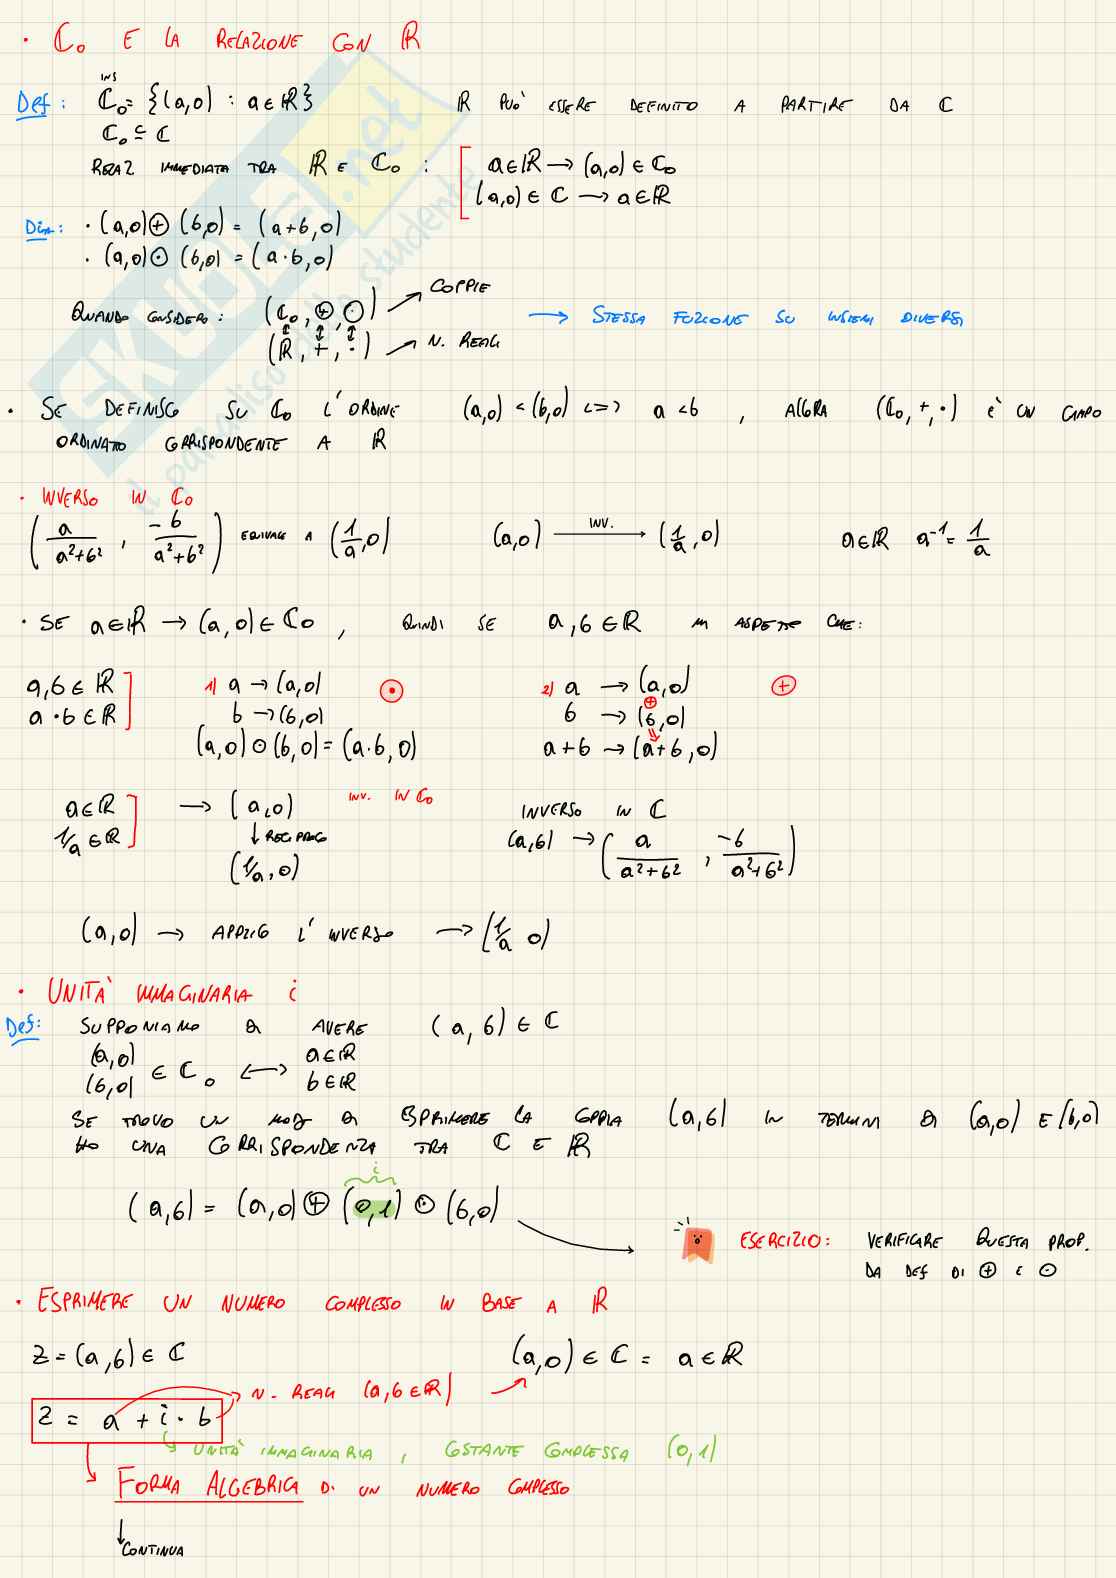 • ℂ₀ E LA RELAZIONE CON ℝ
INS
Def: ℂ₀ = {(a,0) : a ∈ ℝ} ℝ PUÒ ESSERE DEFINITO A PARTIRE DA ℂ
ℂ₀ ⊆ ℂ
RELAZ IMMEDIATA TRA ℝ E ℂ₀ : a ∈ ℝ → (a,0) ∈ ℂ₀
(a,0) ∈ ℂ → a ∈ ℝ
Dim: • (a,0) ⊕ (b,0) = (a+b,0)
• (a,0) ⊙ (b,0) = (a·b,0)
QUANDO CONSIDERO: (ℂ₀, ⊕, ⊙) → COPPIE
→ STESSA FUNZIONE SU INSIEMI DIVERSI
(ℝ, +, ·) → N. REALI
• SE DEFINISCO SU ℂ₀ L'ORDINE (a,0) < (b,0) <=> a < b , ALLORA (ℂ₀, +, ·) È UN CAMPO
ORDINATO CORRISPONDENTE A ℝ
• INVERSO IN ℂ₀
(a/(a²+b²) , -b/(a²+b²)) EQUIVALE A (1/a,0) (a,0) —INV.→ (1/a,0) a ∈ ℝ a⁻¹ = 1/a
• SE a ∈ ℝ → (a,0) ∈ ℂ₀ , QUINDI SE a,b ∈ ℝ MI ASPETTO CHE:
a,b ∈ ℝ 1) a → (a,0) ⊙ 2) a → (a,0) ⊕
⊕
a·b ∈ ℝ b → (b,0) b → (b,0)
(a,0) ⊙ (b,0) = (a·b,0) a+b → (a+b,0)
a ∈ ℝ → (a,0) INV. IN ℂ₀ INVERSO IN ℂ
1/a ∈ ℝ ↓ RECIPROCO (a,b) → (a/(a²+b²) , -b/(a²+b²))
(1/a,0)
(a,0) → APPLICO L'INVERSO → (1/a 0)
• UNITÀ IMMAGINARIA i
Def: SUPPONIAMO DI AVERE (a,b) ∈ ℂ
(a,0) a ∈ ℝ
∈ ℂ₀ ↔
(b,0) b ∈ ℝ
SE TROVO UN MODO DI ESPRIMERE LA COPPIA (a,b) IN TERMINI DI (a,0) E (b,0)
HO UNA CORRISPONDENZA TRA ℂ E ℝ
i
(a,b) = (a,0) ⊕ (0,1) ⊙ (b,0)
ESERCIZIO: VERIFICARE QUESTA PROP.
DA DEF DI ⊕ E ⊙
• ESPRIMERE UN NUMERO COMPLESSO IN BASE A ℝ
Z = (a,b) ∈ ℂ (a,0) ∈ ℂ = a ∈ ℝ
N. REALI (a,b ∈ ℝ) →
Z = a + i · b
UNITÀ IMMAGINARIA , COSTANTE COMPLESSA (0,1)
FORMA ALGEBRICA DI UN NUMERO COMPLESSO
↓ CONTINUA
SKUOLA.net
il paradiso dello studente